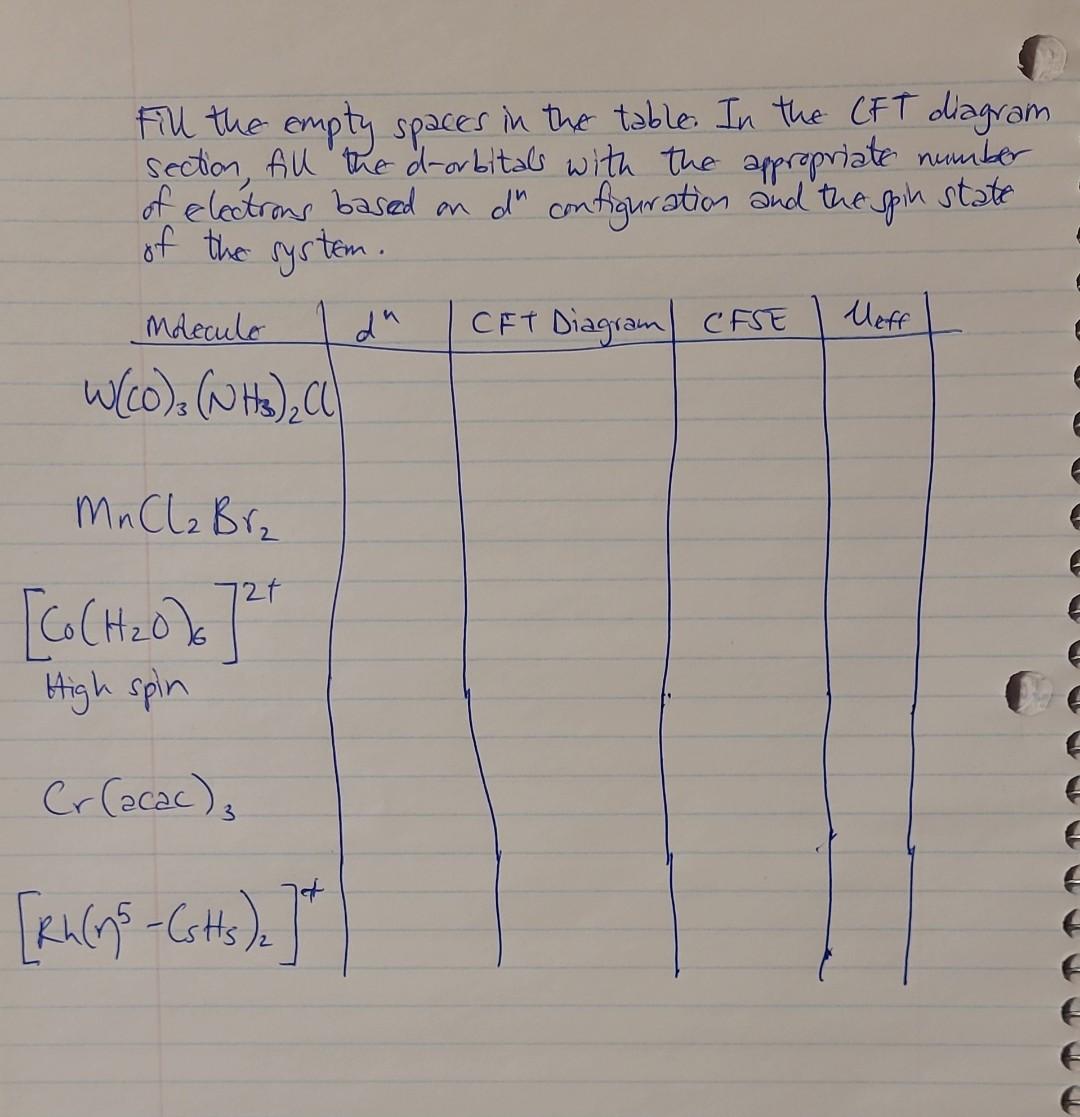 Fill the empty spaces in the table. In the CFT diagram
section, fill the d-orbitals with the appropriate number
of electrons based on dⁿ configuration and the spin state
of the system.
Molecule dⁿ CFT Diagram CFSE Ueff
W(CO)₃(NH₃)₂Cl
MnCl₂Br₂
[Co(H₂O)₆]²⁺
High spin
Cr(acac)₃
[Rh(η⁵-C₅H₅)₂]⁺